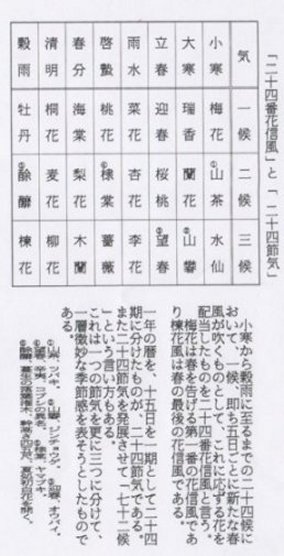 「二十四番花信風」と「二十四節気」
気 一候 二候 三候
小寒 梅花 ①山茶 水仙
大寒 瑞香 蘭花 ②山礬
立春 迎春 桜桃 望春
雨水 菜花 杏花 李花
啓蟄 桃花 棣棠 薔薇
春分 海棠 梨花 木蘭
清明 桐花 麦花 柳花
穀雨 牡丹 酴醾 楝花
小寒から穀雨に至るまでの二十四候に
おいて、一候、即ち五日ごとに新たな春
風が吹くものとして、これに応ずる花を
配当したものを二十四番花信風と言う。
梅花は春を告げる第一番の花信風であ
り楝花風は春の最後の花信風である。
一年の暦を、十五日を一期として二十四
期に分けたものが、二十四節気である。
また二十四節気を発展させて「七十二候
」という言い方もある
これは一つの節気を更に三つに分けて、
一層微妙な季節感を表そうとしたもので
ある。
①山茶、ツバキ。 ②山礬、ジンチョウゲ。
コブシの異名。 ヤマブキ。